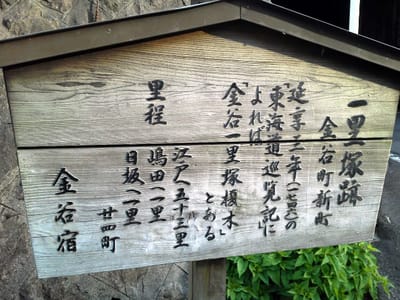 一里塚跡
金谷町新町
延享三年(一七四六)の
「東海道巡覧記」に
よれば
「金谷一里塚榎木」
とある
里程
江戸へ五十三里
嶋田へ一里
日坂へ一里
廿四町
金谷宿